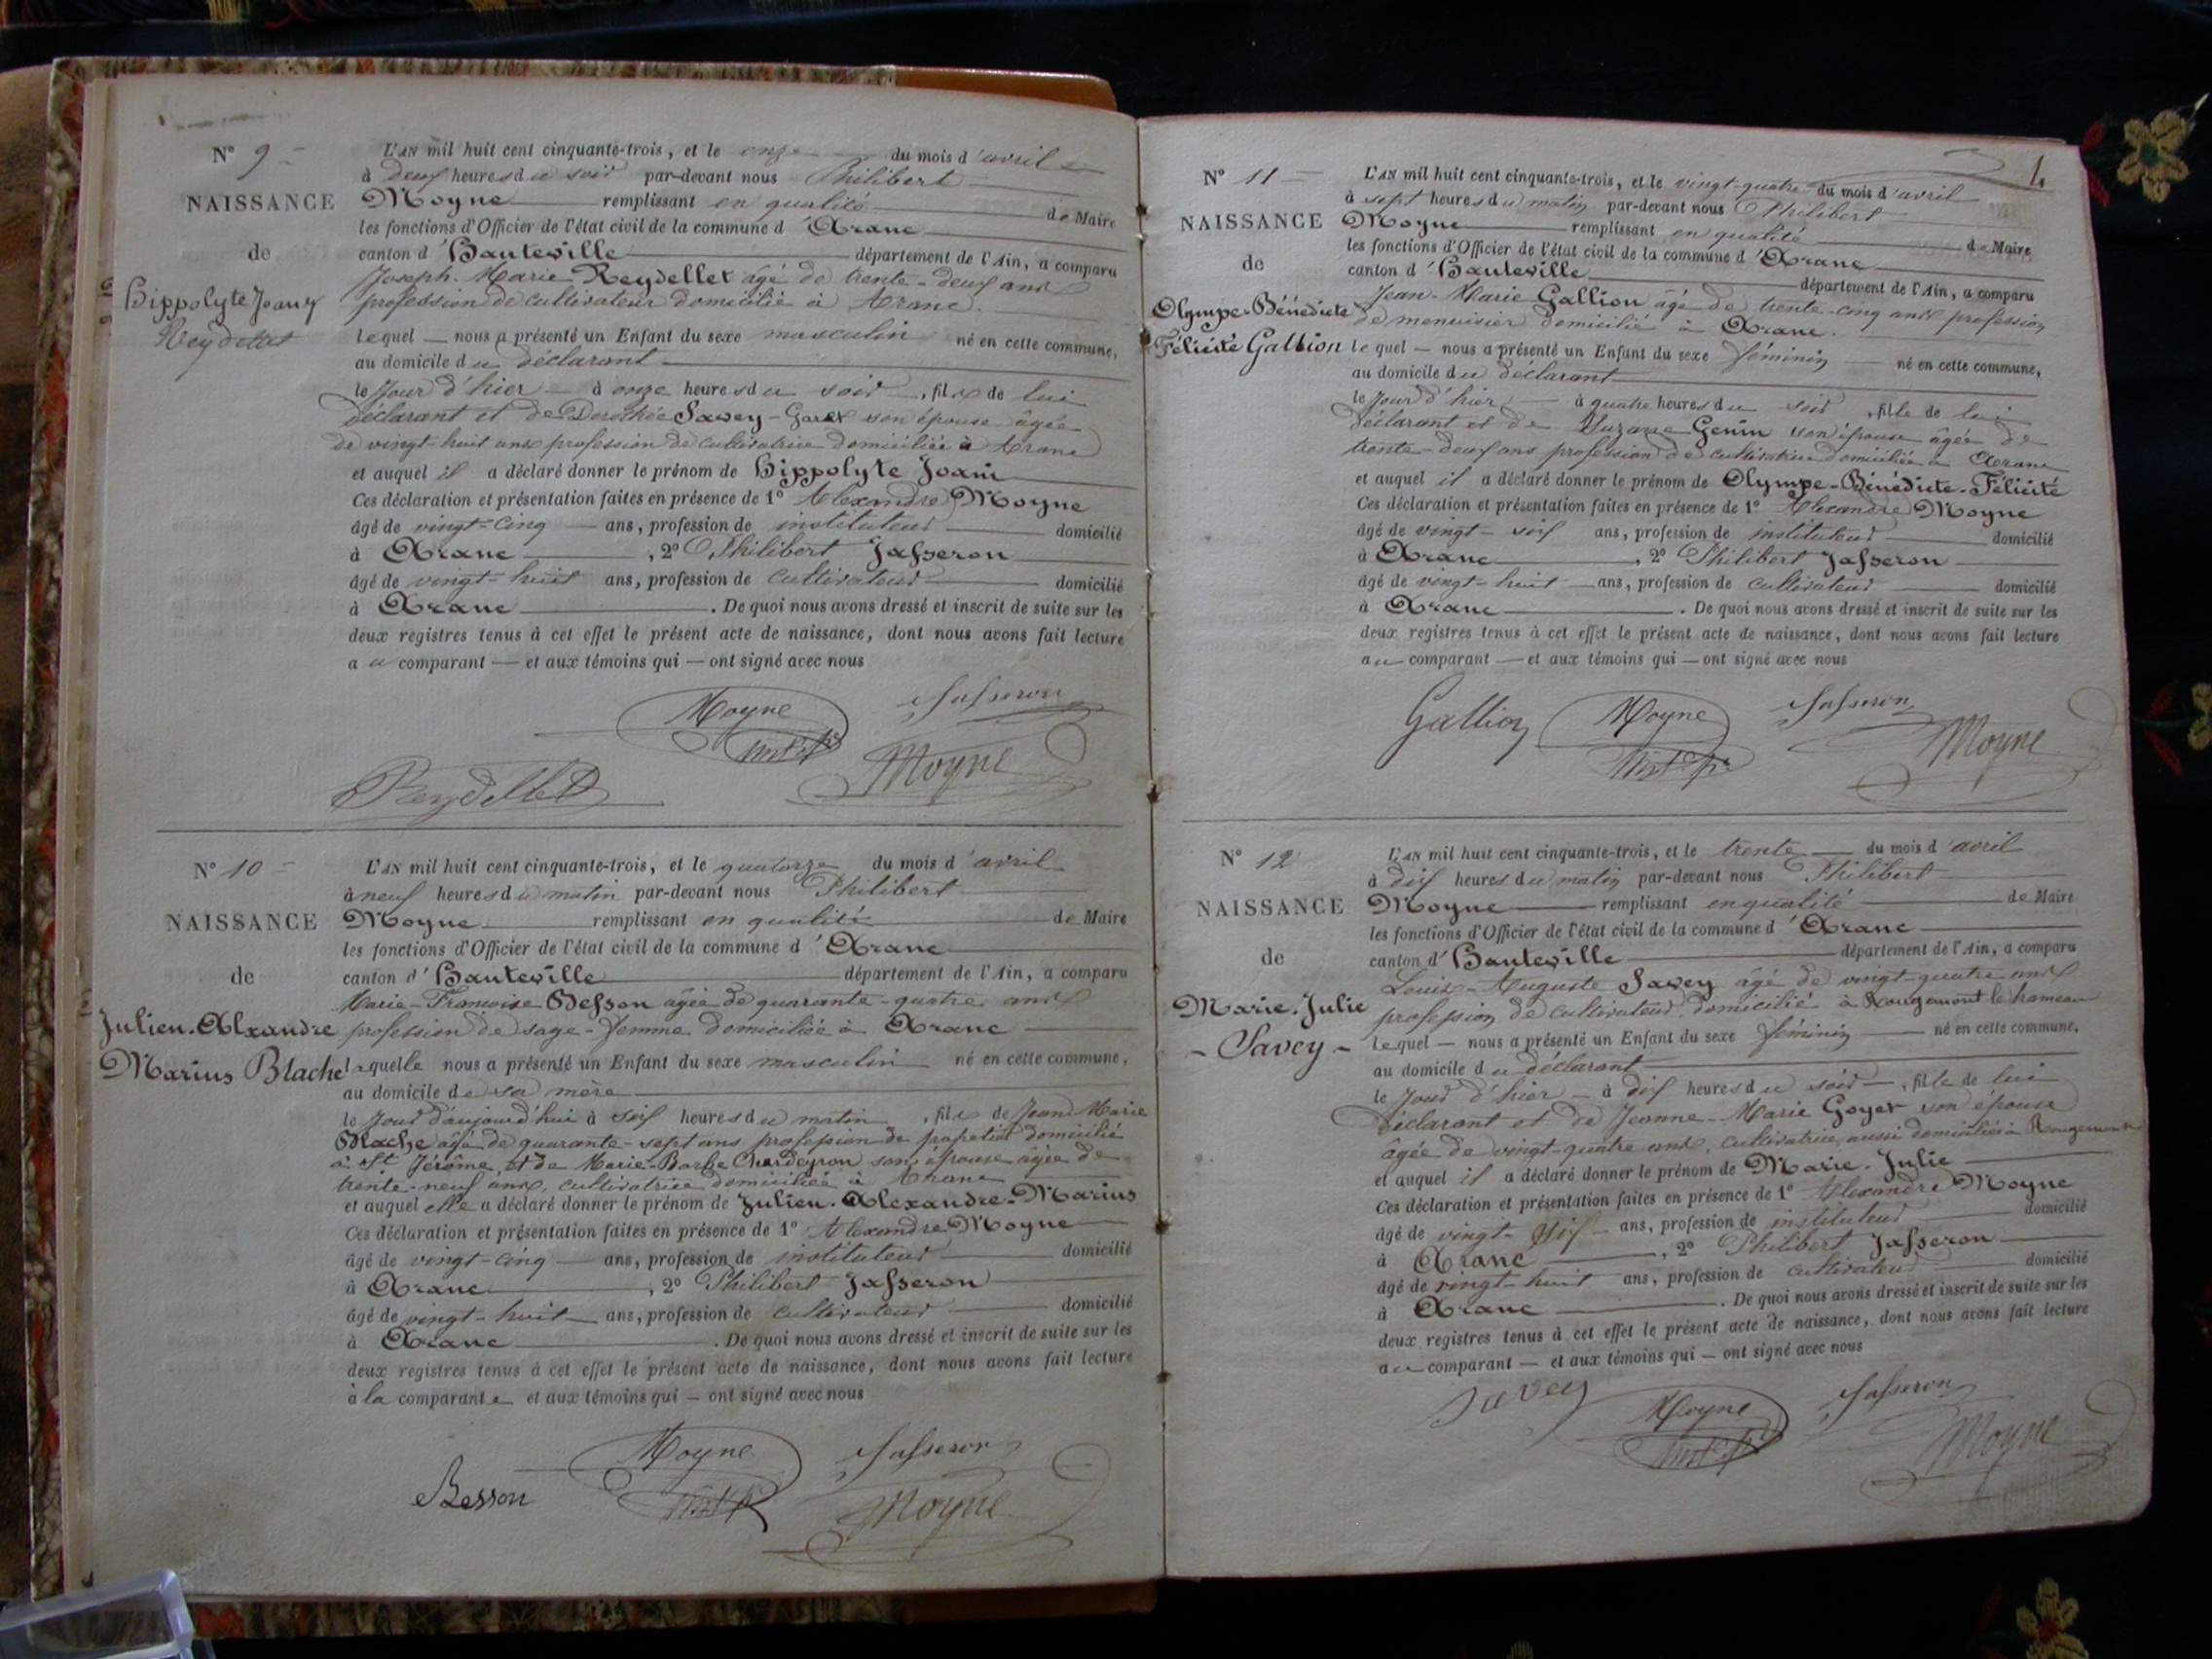 N° 9
NAISSANCE
de
Hippolyte Joany
Reydellet
L'AN mil huit cent cinquante-trois, et le onze du mois d'avril
à deux heures du soir par-devant nous Philibert
Moyne remplissant en qualité de Maire
les fonctions d'Officier de l'état civil de la commune d'Aranc
canton d'Hauteville département de l'Ain, a comparu
Joseph-Marie Reydellet âgé de trente-deux ans
profession de cultivateur domicilié à Aranc.
lequel nous a présenté un Enfant du sexe masculin né en cette commune,
au domicile du déclarant
le jour d'hier à onze heures du soir, fils de lui
déclarant et de Dorothée Savey-Garet son épouse âgée
de vingt-huit ans profession de cultivatrice domiciliée à Aranc
et auquel il a déclaré donner le prénom de Hippolyte Joani
Ces déclaration et présentation faites en présence de 1° Alexandre Moyne
âgé de vingt-cinq ans, profession de instituteur domicilié
à Aranc, 2° Philibert Jasseron
âgé de vingt-huit ans, profession de cultivateur domicilié
à Aranc. De quoi nous avons dressé et inscrit de suite sur les
deux registres tenus à cet effet le présent acte de naissance, dont nous avons fait lecture
au comparant — et aux témoins qui — ont signé avec nous
Moyne Jasseron
Moyne
Reydellet
N° 10
NAISSANCE
de
Julien-Alxandre
Marius Blache
L'AN mil huit cent cinquante-trois, et le quatorze du mois d'avril
à neuf heures du matin par-devant nous Philibert
Moyne remplissant en qualité de Maire
les fonctions d'Officier de l'état civil de la commune d'Aranc
canton d'Hauteville département de l'Ain, a comparu
Marie-Françoise Besson âgée de quarante-quatre ans
profession de sage-femme domiciliée à Aranc
laquelle nous a présenté un Enfant du sexe masculin né en cette commune,
au domicile de sa mère
le jour d'aujourd'hui à six heures du matin, fils de Jean Marie
Blache âgé de quarante-sept ans profession de domicilié
à St Jérôme et de Marie-Barbe Chardeyron son épouse âgée de
trente-neuf ans, cultivatrice domiciliée à Aranc
et auquel elle a déclaré donner le prénom de Julien-Alexandre-Marius
Ces déclaration et présentation faites en présence de 1° Alexandre Moyne
âgé de vingt-cinq ans, profession de instituteur domicilié
à Aranc, 2° Philibert Jasseron
âgé de vingt-huit ans, profession de cultivateur domicilié
à Aranc. De quoi nous avons dressé et inscrit de suite sur les
deux registres tenus à cet effet le présent acte de naissance, dont nous avons fait lecture
à la comparante et aux témoins qui — ont signé avec nous
Moyne Jasseron
Besson Moyne
4
N° 11
NAISSANCE
de
Olympe-Bénédicte
Félicité Gallion
L'AN mil huit cent cinquante-trois, et le vingt-quatre du mois d'avril
à sept heures du matin par-devant nous Philibert
Moyne remplissant en qualité de Maire
les fonctions d'Officier de l'état civil de la commune d'Aranc
canton d'Hauteville département de l'Ain, a comparu
Jean-Marie Gallion âgé de trente-cinq ans profession
de menuisier domicilié à Aranc.
lequel — nous a présenté un Enfant du sexe féminin né en cette commune,
au domicile du déclarant
le jour d'hier à quatre heures du soir, fille de lui
déclarant et de Suzane Genin son épouse âgée de
trente-deux ans profession de cultivatrice domiciliée à Aranc
et auquel il a déclaré donner le prénom de Olympe-Bénédicte-Félicité
Ces déclaration et présentation faites en présence de 1° Alexandre Moyne
âgé de vingt-six ans, profession de instituteur domicilié
à Aranc, 2° Philibert Jasseron
âgé de vingt-huit ans, profession de cultivateur domicilié
à Aranc. De quoi nous avons dressé et inscrit de suite sur les
deux registres tenus à cet effet le présent acte de naissance, dont nous avons fait lecture
au comparant — et aux témoins qui — ont signé avec nous
Gallion Moyne Jasseron
Moyne
N° 12
NAISSANCE
de
Marie-Julie
- Savey -
L'AN mil huit cent cinquante-trois, et le trente du mois d'avril
à dix heures du matin par-devant nous Philibert
Moyne remplissant en qualité de Maire
les fonctions d'Officier de l'état civil de la commune d'Aranc
canton d'Hauteville département de l'Ain, a comparu
Louis-Auguste Savey âgé de vingt-quatre ans
profession de cultivateur domicilié à Rougemont le hameau
lequel — nous a présenté un Enfant du sexe féminin né en cette commune,
au domicile du déclarant
le jour d'hier à dix heures du soir, fille de lui
déclarant et de Jeanne-Marie Goyet son épouse
âgée de vingt-quatre ans, cultivatrice aussi domiciliée à Rougemont
et auquel il a déclaré donner le prénom de Marie-Julie
Ces déclaration et présentation faites en présence de 1° Alexandre Moyne
âgé de vingt-six ans, profession de instituteur domicilié
à Aranc, 2° Philibert Jasseron
âgé de vingt-huit ans, profession de cultivateur domicilié
à Aranc. De quoi nous avons dressé et inscrit de suite sur les
deux registres tenus à cet effet le présent acte de naissance, dont nous avons fait lecture
au comparant — et aux témoins qui — ont signé avec nous
Savey Moyne Jasseron
Moyne